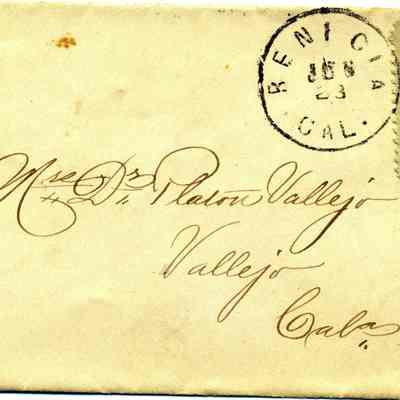 BENICIA
JUN
23
CAL.
Mrs. Dr. Platon Vallejo
Vallejo
Cala